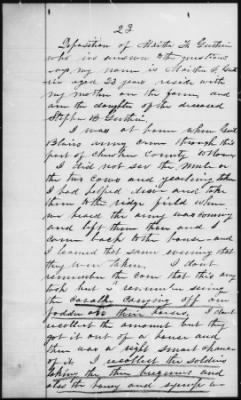 23
Deposition of Martha H. Guthrie
who in answer to the questions
says my name is Martha H. Guth
rie aged 23 years reside with
my mother on the farm and
am the daughter of the deceased
Stephen B Guthrie
I was at home when Genl
Blairs army came through this
part of Cherokee County Alabama
I did not see the mule or
the two cows and yearlings taken
I had helped drive and take
them to the ridge field when
we heard the army was coming
and left them there and I
came back to the house and
I learned that same evening that
they were taken. I dont
remember the corn that this army
took but I remember seeing
the cavalry carrying off our
fodder on their horses, I dont
recollect the amount but they
got it out of a house and
there was a right smart chance
of it I recollect the soldiers
taking the three beegums and
also the honey and